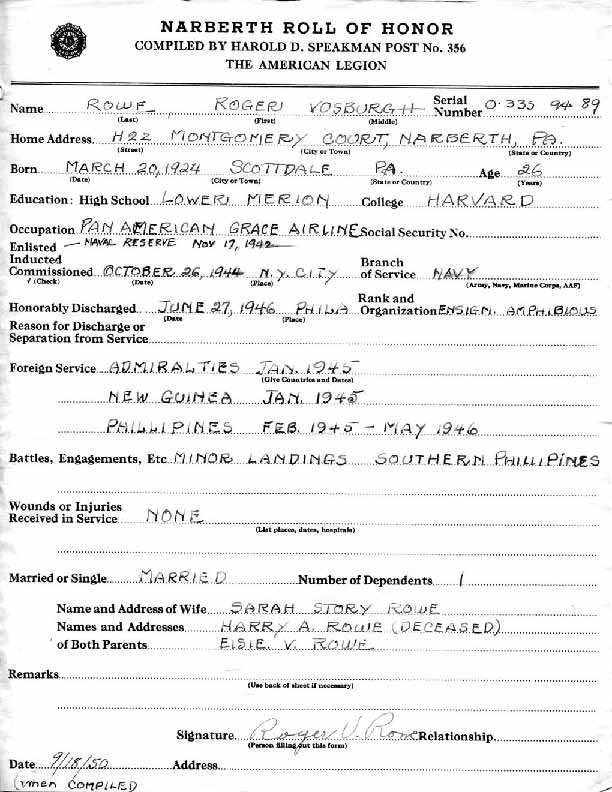 NARBERTH ROLL OF HONOR
COMPILED BY HAROLD D. SPEAKMAN POST No. 356
THE AMERICAN LEGION
Name ROWE ROGER VOSBURGH Serial Number 0.335 94 89
(Last) (First) (Middle)
Home Address H22 MONTGOMERY COURT, NARBERTH, PA.
(Street) (City or Town) (State or Country)
Born MARCH 20, 1924 SCOTTDALE PA. Age 26
(Date) (City or Town) (State or Country) (Years)
Education: High School LOWER MERION College HARVARD
Occupation PAN AMERICAN GRACE AIRLINE Social Security No.
Enlisted — NAVAL RESERVE NOV 17, 1942
Inducted
Commissioned OCTOBER 26, 1944 N.Y. CITY Branch of Service NAVY
√ (Check) (Date) (Place) (Army, Navy, Marine Corps, AAF)
Honorably Discharged JUNE 27, 1946 PHILA Rank and Organization ENSIGN. AMPHIBIOUS
(Date (Place)
Reason for Discharge or
Separation from Service
Foreign Service ADMIRALTIES JAN. 1945
(Give Countries and Dates)
NEW GUINEA JAN. 1945
PHILLIPINES FEB. 1945 - MAY 1946
Battles, Engagements, Etc MINOR LANDINGS SOUTHERN PHILLIPINES
Wounds or Injuries
Received in Service NONE
(List places, dates, hospitals)
Married or Single MARRIED Number of Dependents 1
Name and Address of Wife SARAH STORY ROWE
Names and Addresses HARRY A. ROWE (DECEASED)
of Both Parents ELSIE V. ROWE
Remarks
(Use back of sheet if necessary)
Signature Roger V. Rowe Relationship
(Person filling out this form)
Date 9/18/50 Address
(when COMPILED